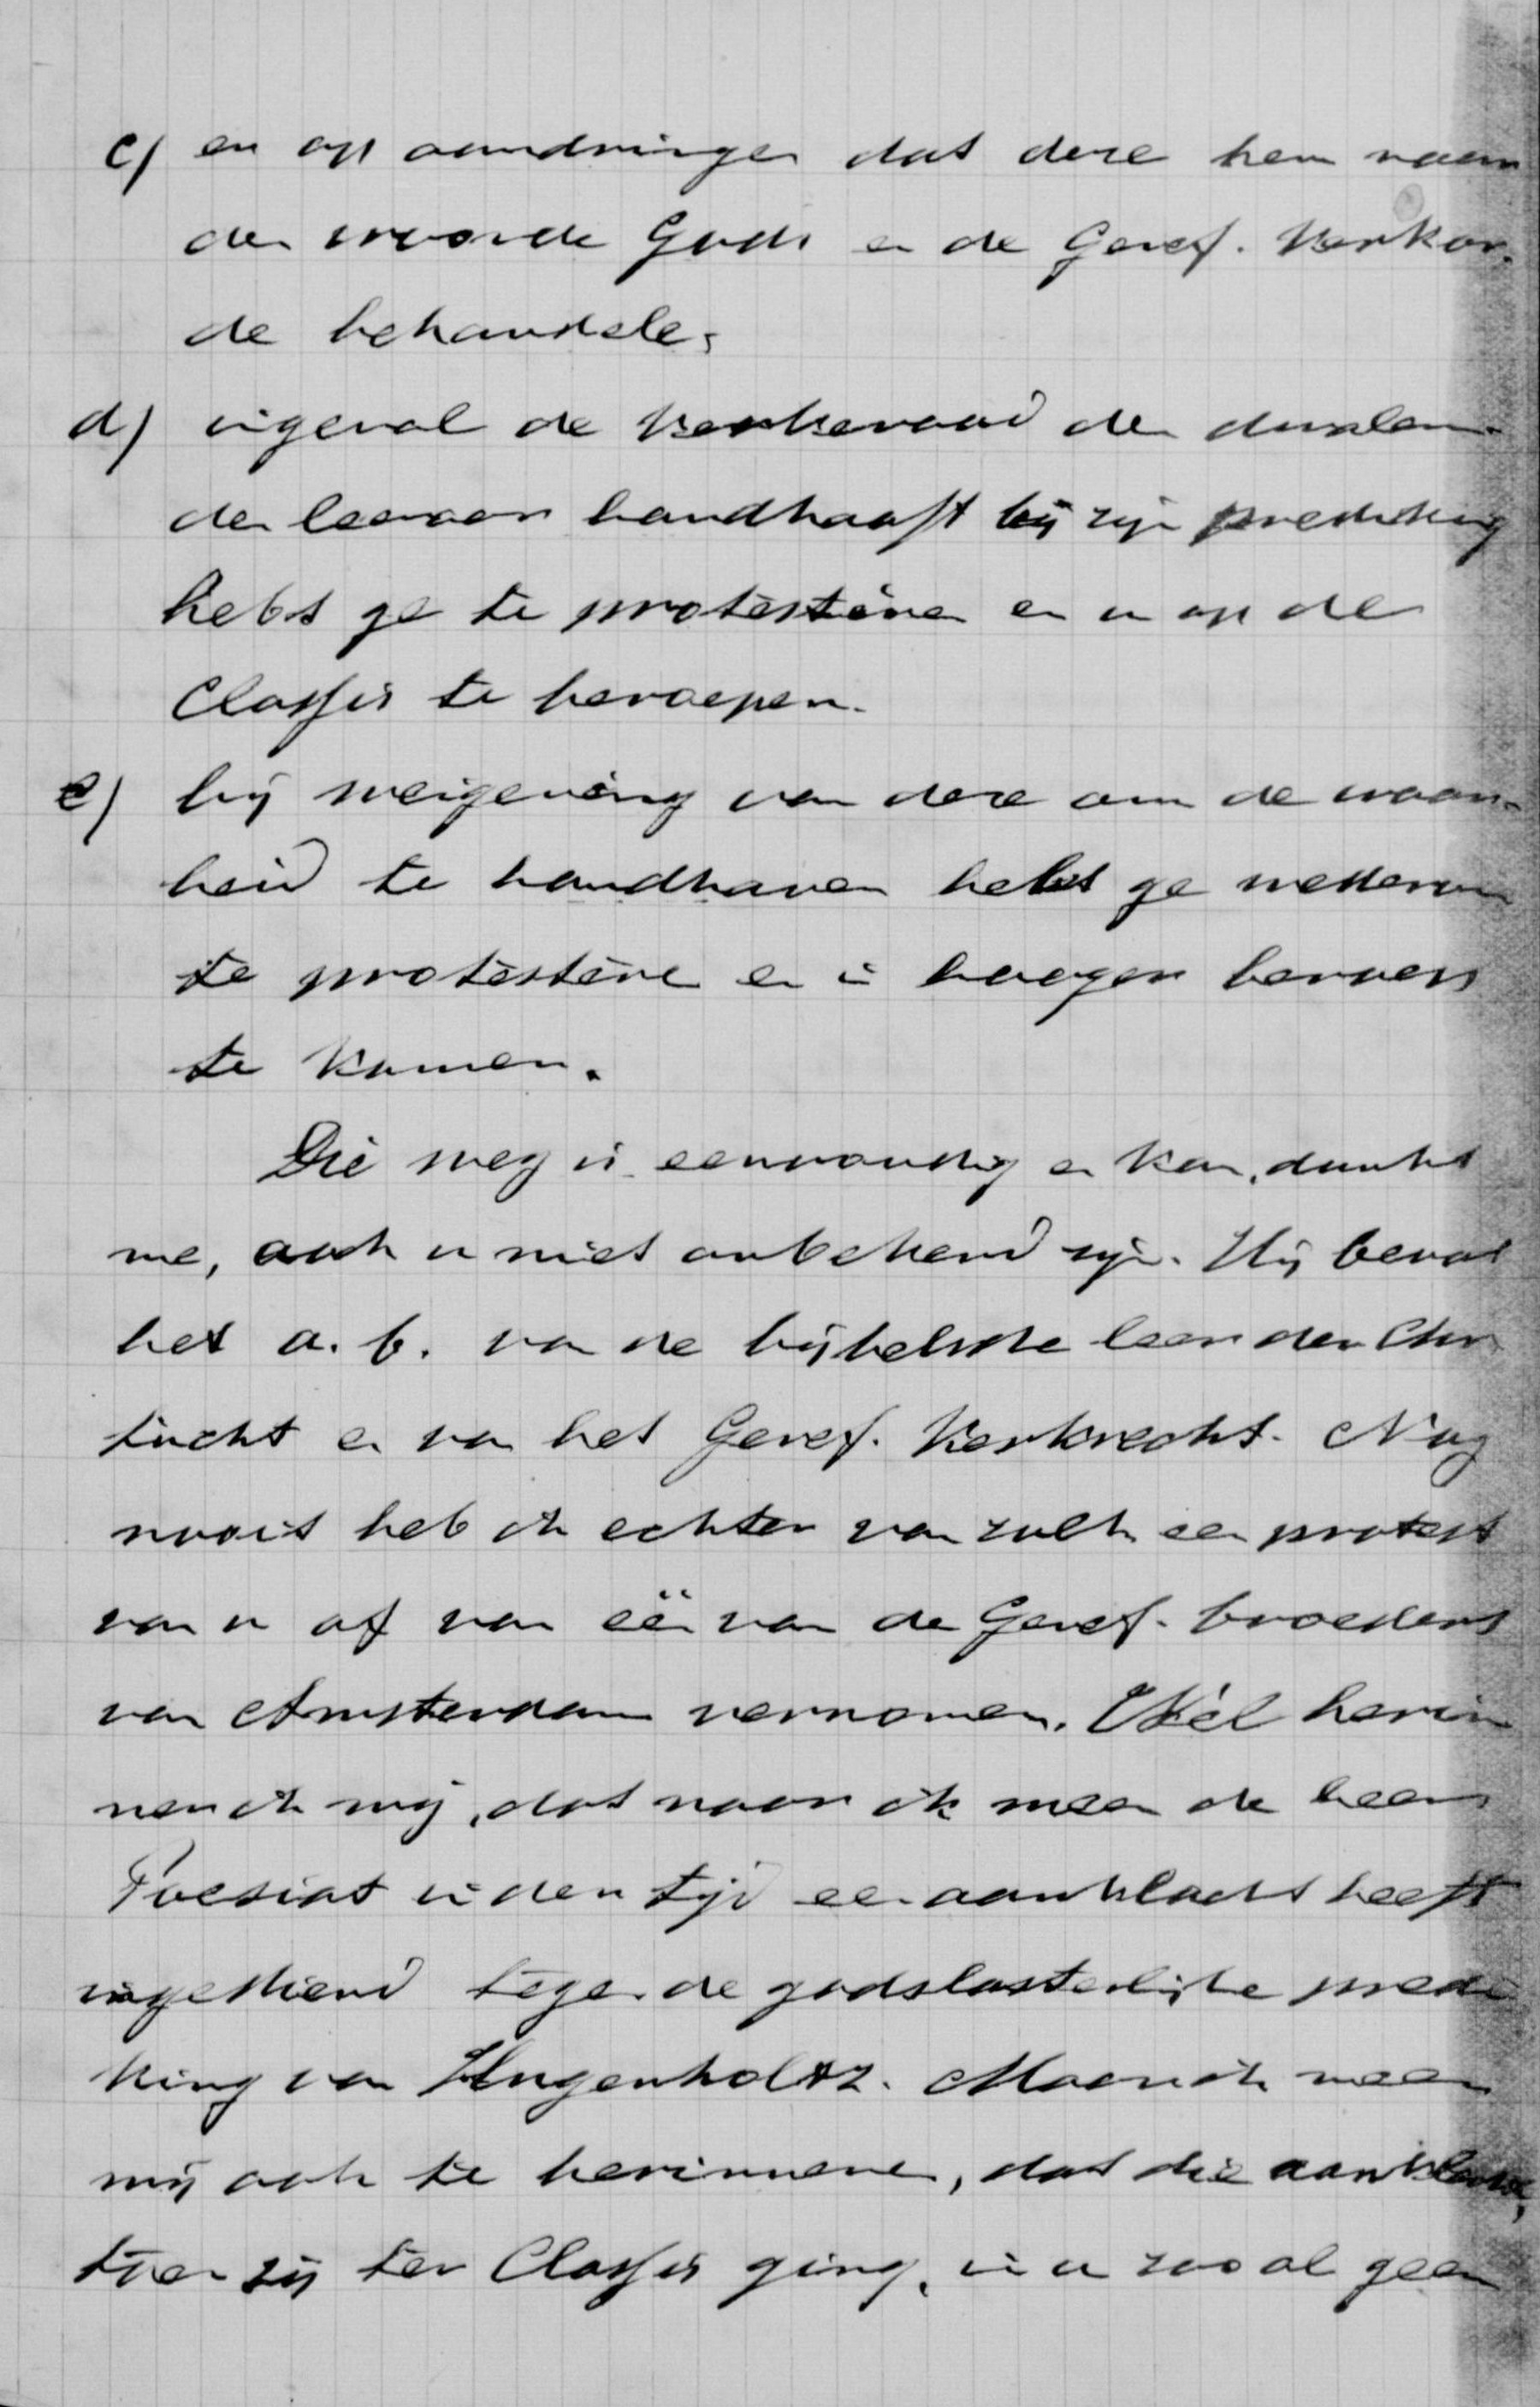 c) en op aandringen dat deze hem naar
den woorde Gods en de Geref. Kerkor-
de behandele;
d) ingeval de Kerkeraad den dwalen-
den leeraar handhaaft bij zijn prediking
hebt ge te protesteeren en u op de
Classis te beroepen.
e) bij weigering van deze om de waar-
heid te handhaven hebt ge wederom
te protesteeren en in hooger beroep
te komen.
Die weg is eenvoudig en kan, dunkt
me, ook u niet onbekend zijn. Hij bevat
het a. b. van de bijbelsche leer der Chr.
tucht en van het Geref. Kerkrecht. Nog
nooit heb ik echter van zulk een protest
van u of van één van de Geref. broeders
van Amsterdam vernomen. Wel herin
ner ik mij, dat naar ik meen de heer
Poesiat in der tijd een aanklacht heeft
ingediend tegen de godslasterlijke predi
king van Hugenholtz. Maar ik meen
mij ook te herinneren, dat die aanklacht,
toen zij ter Classis ging, in u zoo al geen